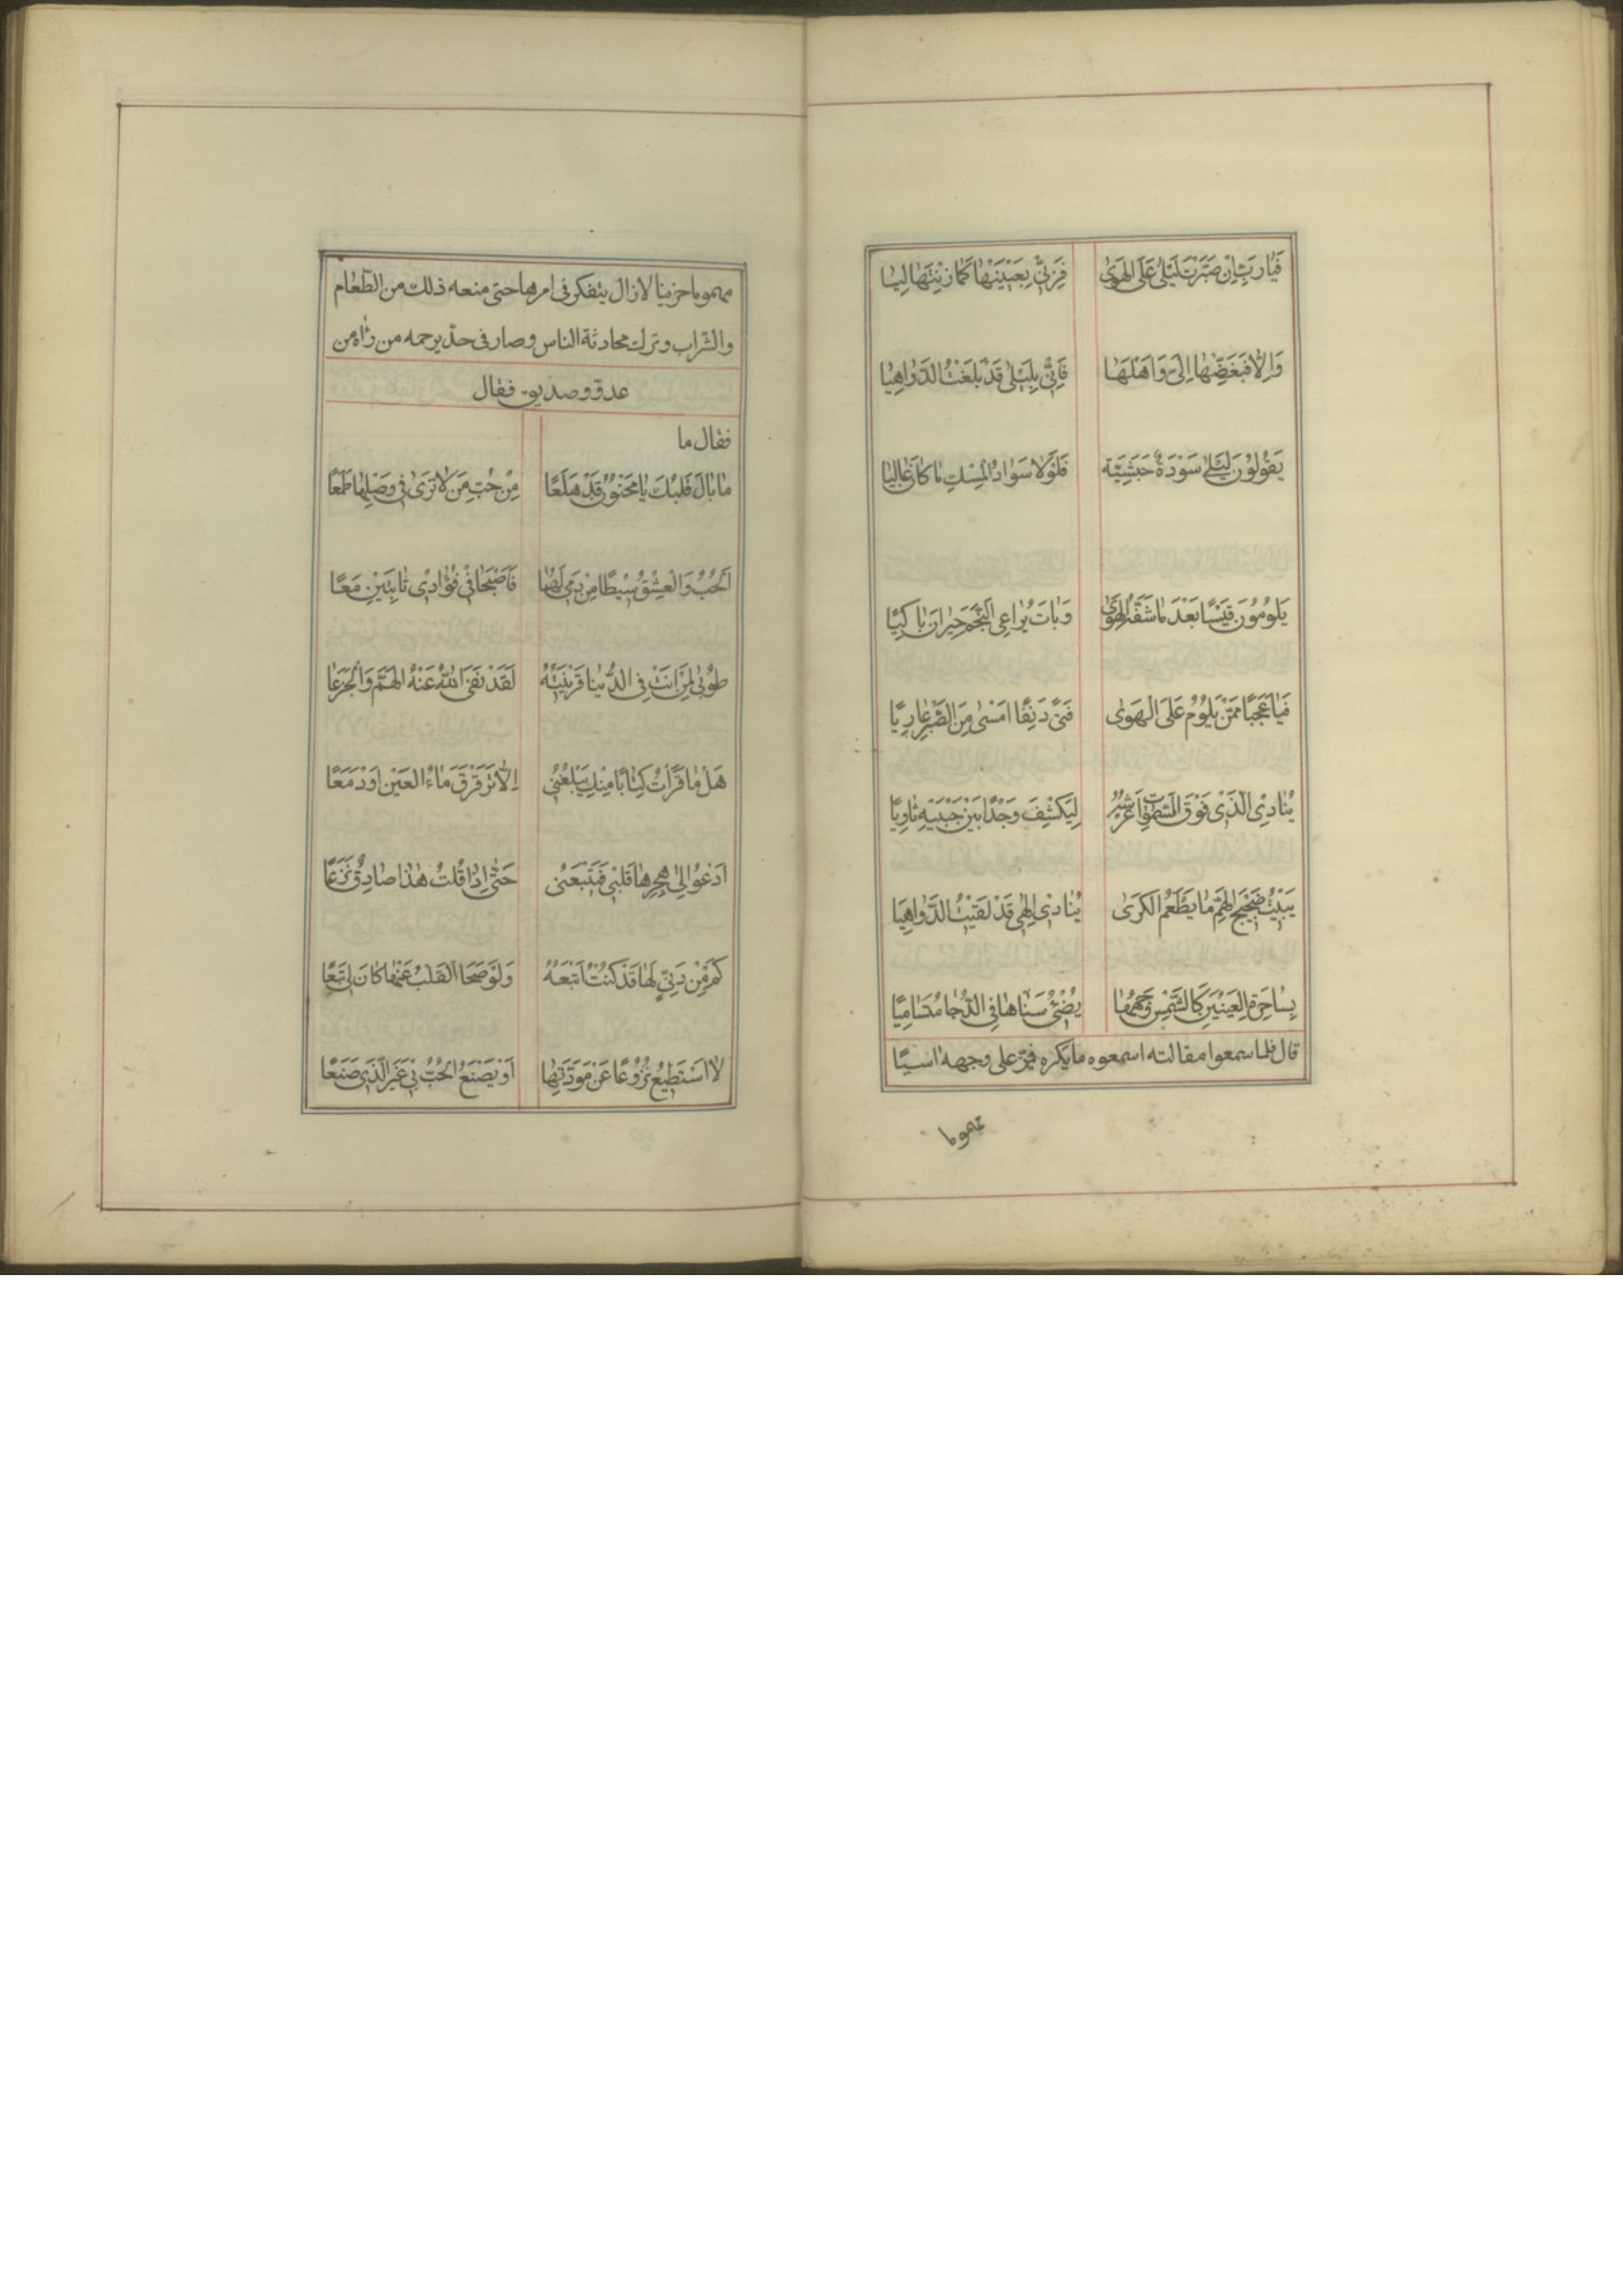 فَيَا رَبِّ اِنْ صَيَّرْتَ لَيْلٰى عَلَى الْهَوٰى فَزِنِّي بِعَيْنَيْهَا كَمَا زِنْتَهَا لِيَا
وَاِلَّا فَبَغِّضْهَا اِلَيَّ وَاَهْلَهَا فَاِنِّي بِلَيْلٰى قَدْ بَلَغْتُ الدَّوَاهِيَا
يَقُوْلُوْنَ لَيْلٰى سَوْدَةٌ حَبَشِيَّة فَلَوْلَا سَوَادُ الْمِسْكِ مَا كَانَ غَالِيَا
يَلُوْمُوْنَ قَيْسًا بَعْدَ مَا شَفَّهُ الْهَوٰى وَبَاتَ يُرَاعِي النَّجْمَ حَيْرَانَ بَاكِيًا
فَيَا عَجَبًا مِمَّنْ يَلُوْمُ عَلَى الْهَوٰى فَتًى دَنِفًا اَمْسٰى مِنَ الصَّبْرِ عَارِيًا
يُنَادِي الَّذِي فَوْقَ السَّمٰوَاتِ عَرْشُهُ لِيَكْشِفَ وَجْدًا بَيْنَ جَنْبَيْهِ ثَاوِيًا
يَبِيْتُ ضَجِيْجَ الْهَمِّ مَا يَطْعَمُ الْكَرٰى يُنَادِي اِلٰهِي قَدْ لَقِيْتُ الدَّوَاهِيَا
بِسَاحِرَةِ الْعَيْنَيْنِ كَالشَّمْسِ وَجْهُهَا يُضِيْءُ سَنَاهَا فِي الدُّجَا مُتَسَامِيًا
قال فلما سمعوا مقالته اسمعوه ما يكره فمرّ على وجهه اسيًا
مهموما
مهموما حزينا لا زال يتفكر في امرها حتى منعه ذلك من الطّعام
والشراب وترك محادثة الناس وصار في حدّ يرحمه من رٰاه من
عدوّ وصديق فقال
فقال ما
مَا بَالَ قَلْبُكَ يَا مَجْنُوْنُ قَدْ هَلَعًا مِنْ حُبِّ مَنْ لَا تَرٰى فِي وَصْلِهَا طَمَعًا
اَلْحُبُّ وَالْعِشْقُ سِيْطًا مِنْ دَمِي لَهُمَا فَاَصْبَحَا فِي فُؤَادِي ثَابِتَيْنِ مَعًا
طُوْبٰى لِمَنْ اَنْتِ فِي الدُّنْيَا قَرِيْنَتُهُ لَقَدْ نَفَى اللّٰهُ عَنْهُ الْهَمَّ وَالْجَزَعَا
هَلْ مَا قَرَأْتُ كِتَابًا مِنْكِ يَبْلُغُنِي اِلَّا تَرَقْرَقَ مَاءُ الْعَيْنِ اَوْ دَمَعًا
اَدْعُوْ اِلٰى هِجْرِهَا قَلْبِي فَيَتْبَعُنِي حَتّٰى اِذَا قُلْتُ هٰذَا صَادِقٌ نَزَعًا
كَمْ مِنْ دَنِيٍّ لَهَا قَدْ كُنْتُ اَتْبَعُهُ وَلَوْ صَحَا الْقَلْبُ عَنْهَا كَانَ لِي تَبَعًا
لَا اَسْتَطِيْعُ نُزُوْعًا عَنْ مَوَدَّتِهَا اَوْ يَصْنَعُ الْحُبُّ بِي غَيْرَ الَّذِي صَنَعًا